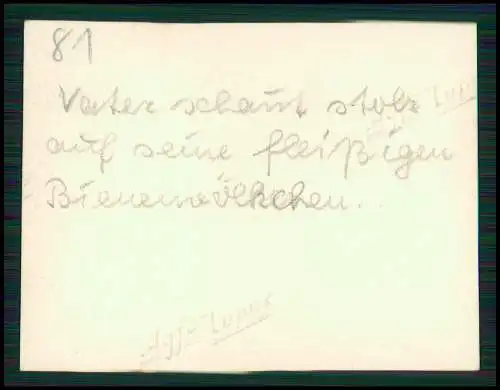 81
Vater schaut stolz
auf seine fleißigen
Bienenvölkchen..
Agfa-Lupex